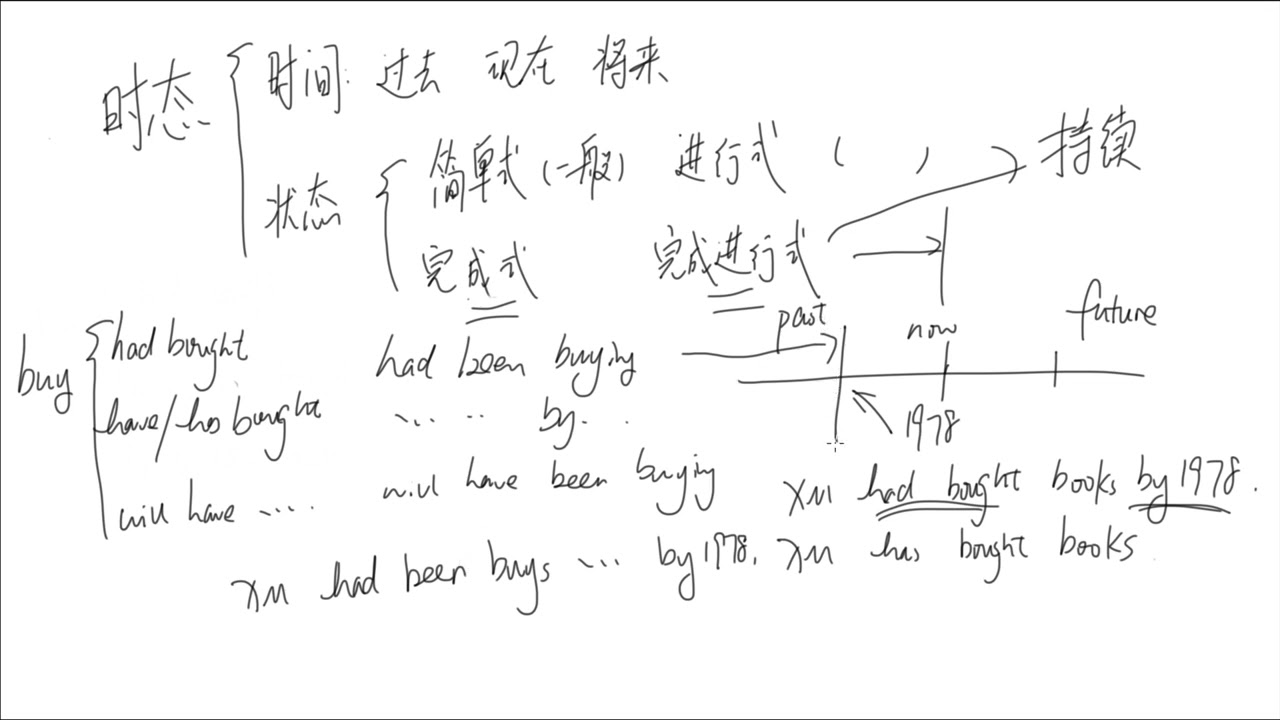 时态 时间: 过去 现在 将来
状态 简单式 (一般) 进行式 ( ) 持续
完成式 完成进行式
past now future
buy had bought had been buying
have/has bought .... .. by. . 1978
will have .... will have been buying
XM had bought books by 1978.
XM had been buys ... by 1978. XM has bought books.